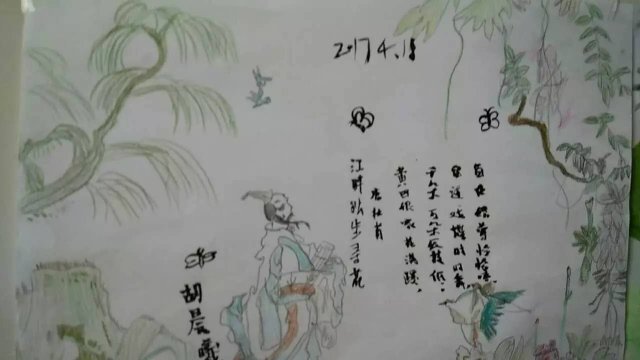 2017.4.18
江畔独步寻花
唐杜甫
黄四娘家花满蹊，
千朵万朵压枝低。
留连戏蝶时时舞，
自在娇莺恰恰啼。
胡晨曦